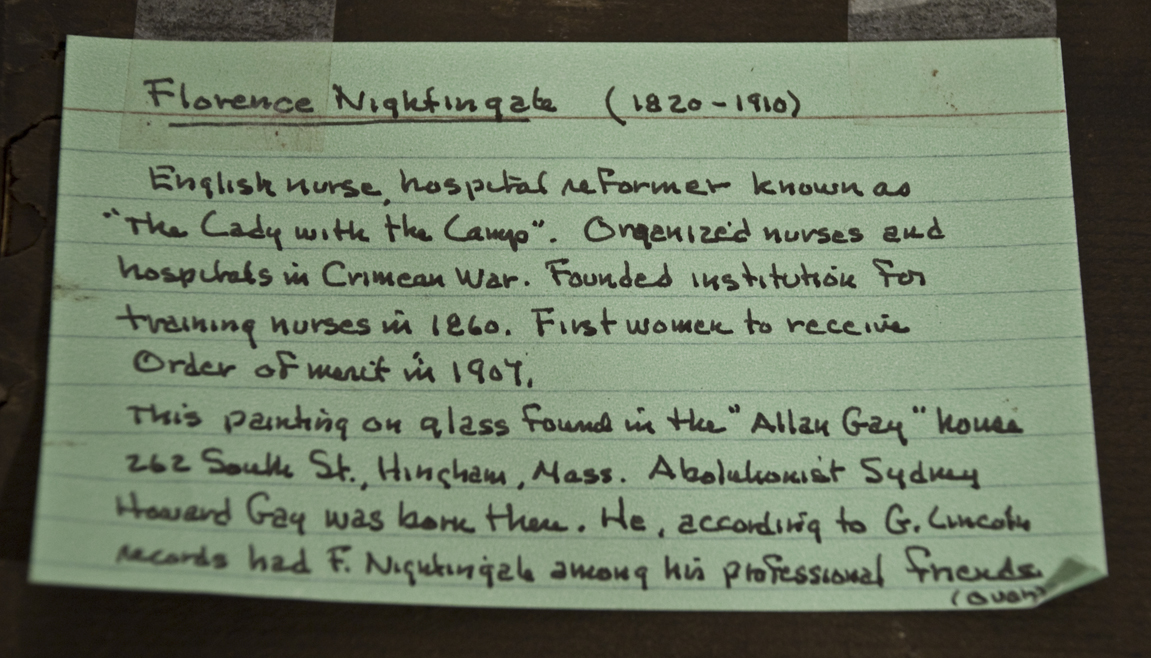 Florence Nightingale (1820-1910)
English nurse, hospital reformer known as
"The Lady with the Lamp". Organized nurses and
hospitals in Crimean War. Founded institution for
training nurses in 1860. First women to receive
Order of merit in 1907.
This painting on glass found in the "Allan Gay" house
262 South St., Hingham, Mass. Abolutionist Sydney
Howard Gay was born there. He, according to G. Lincoln
records had F. Nightingale among his professional friends.
(over)